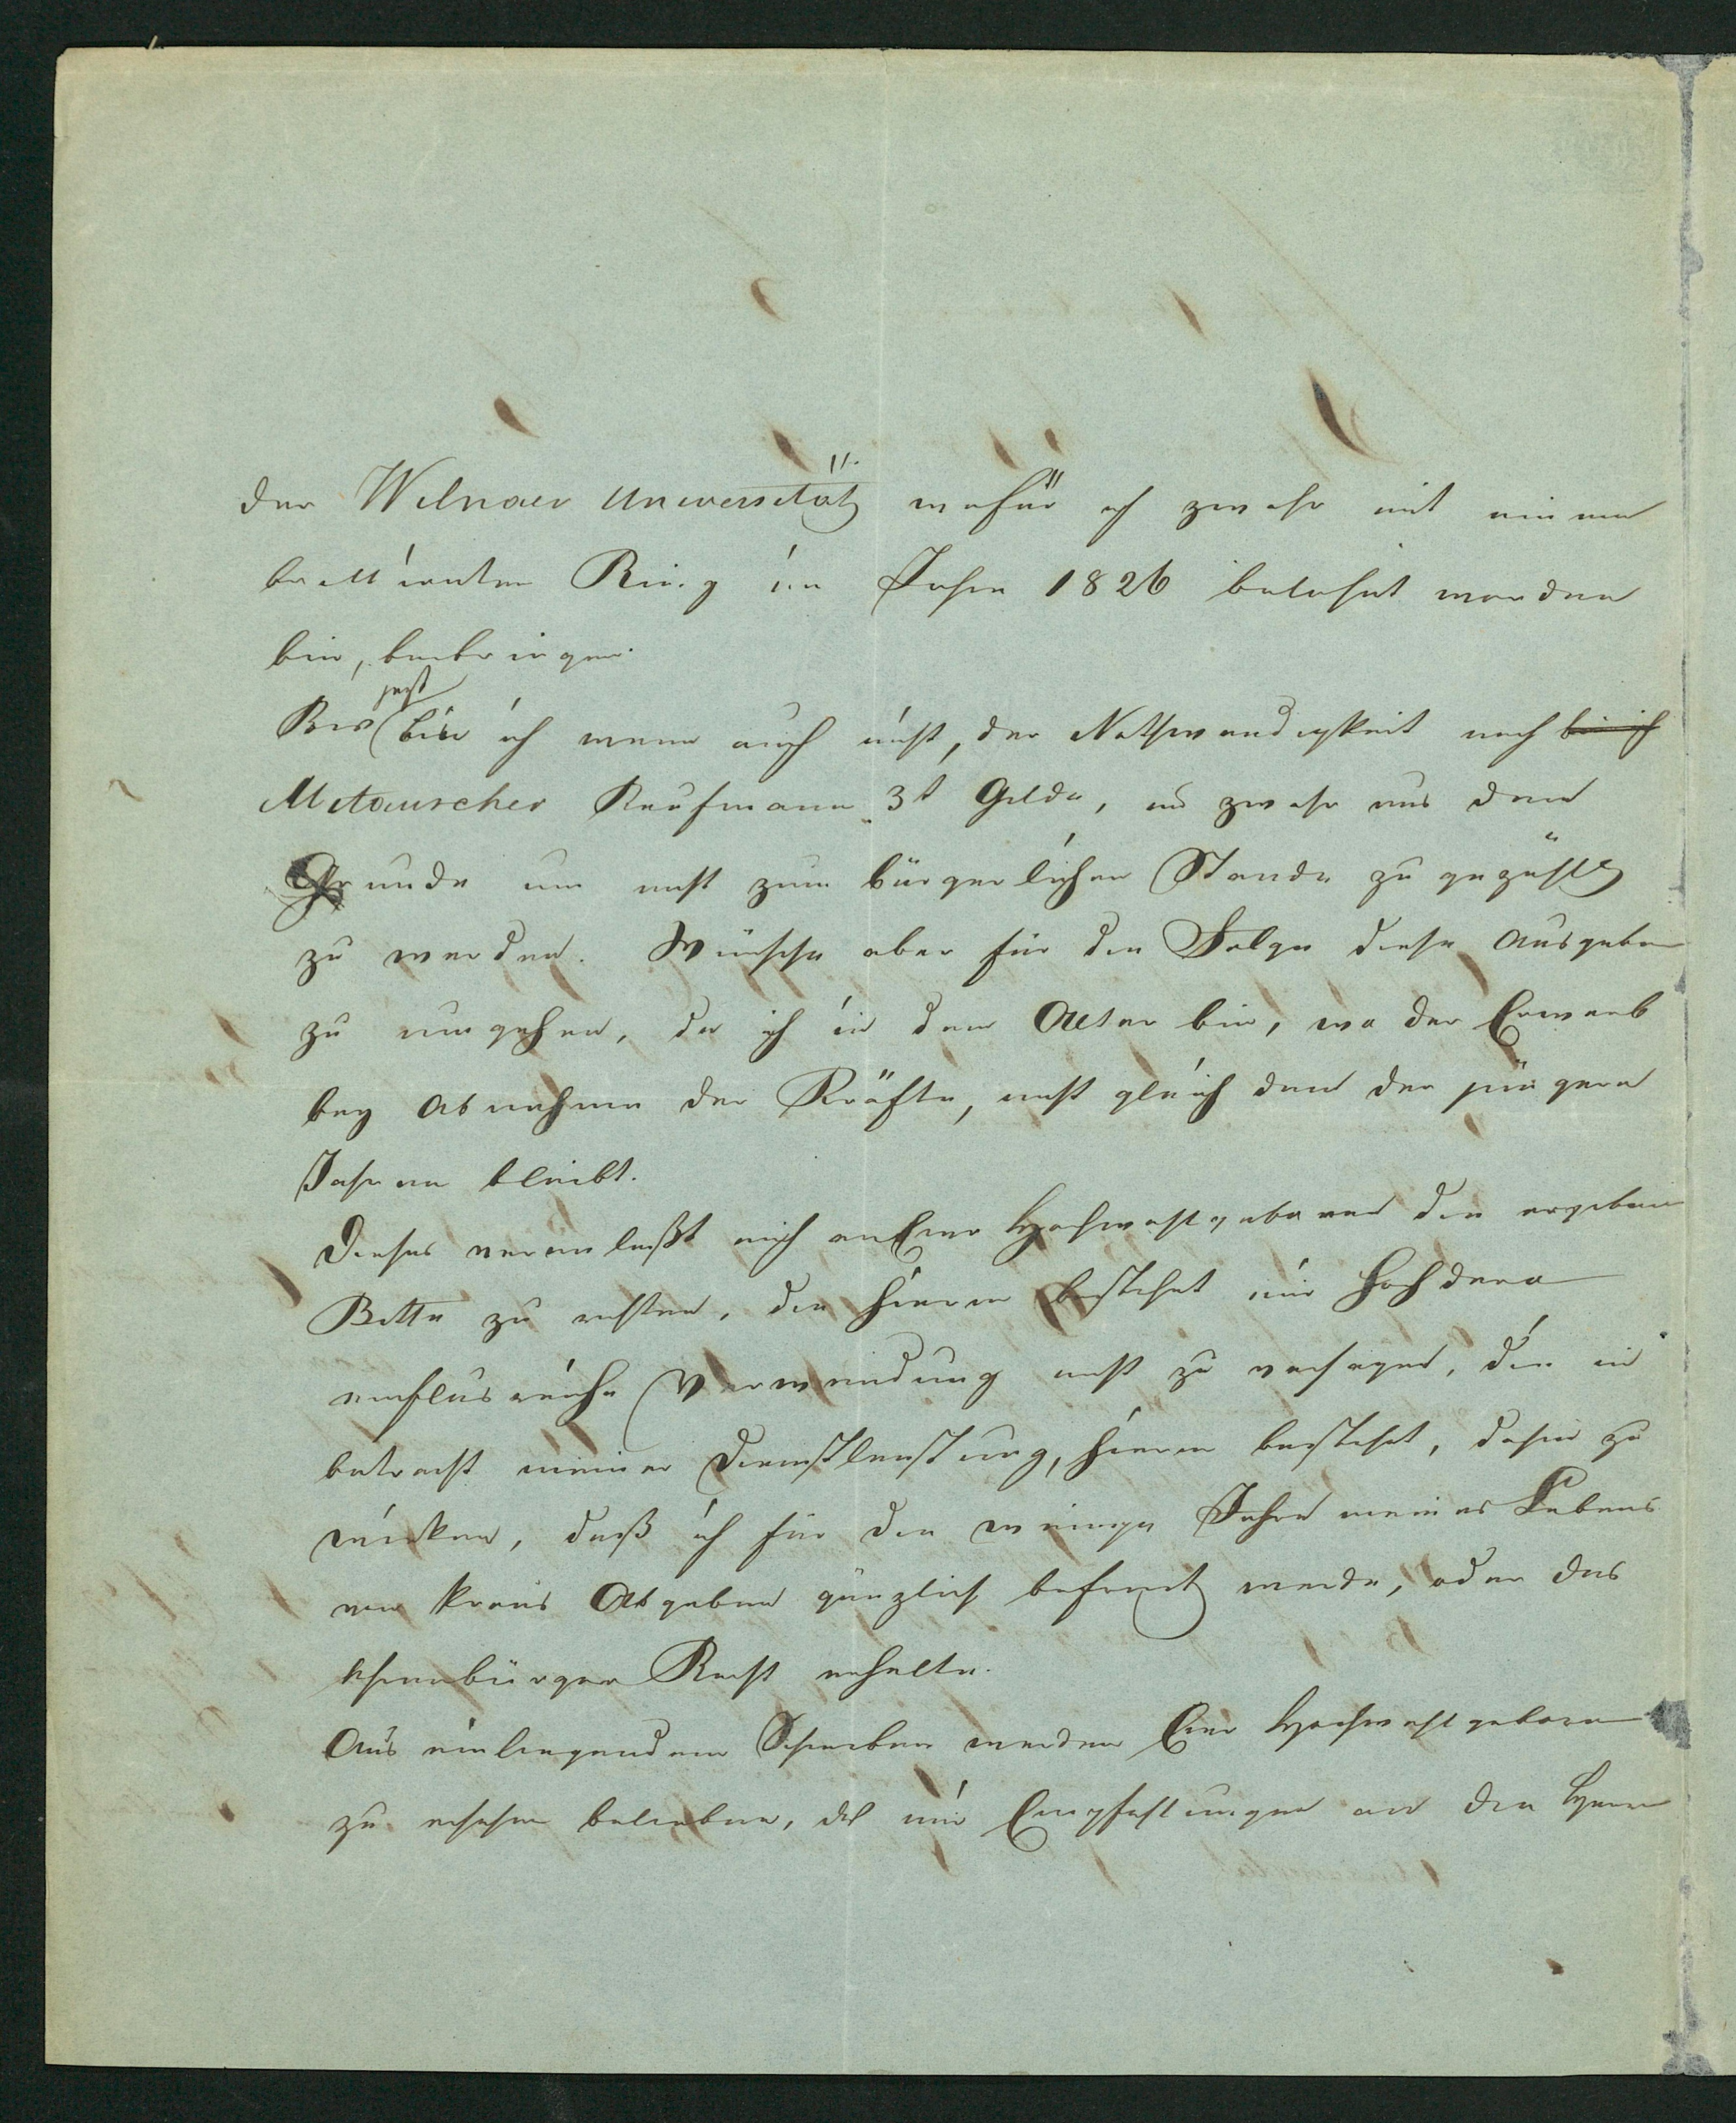 der Wilnaer Universität wofür ich zwahr mit einem
brillianten Ring im Jahre 1826 belohnt worden
bin, beibringen.
Bis jezt bin ich wenn auch nicht, der Nothwendigkeit nach bin ich
Mitauscher Kaufmann 3t Gilde, und zwahr aus dem
Grunde um nicht zum bürgerlichen Stande zu gezählt
zu werden. Wünsche aber für die Folge diese Ausgaben
zu umgehen, da ich in dem Alter bin, wo der Erwerb
bey Abnahme der Kräfte, nicht gleich dem der jüngern
Jahren bleibt.
Dieses veranlaßt mich an Euer Hochwohlgeboren die ergebene
Bitte zu richten, die hierin bestehet mir Hochdero
einflusreiche Verwendung nicht zu versagen, die in
betracht meiner Dienstleistung, hierin bestehet, dahin zu
wirken, daß ich für die wenige Jahre meines Lebens
von Krons Abgaben gänzlich befreit werde, oder das
Ehrenbürger Recht erhalte.
Aus einliegendem Schreiben werden Euer Hochwohlgeboren
zu ersehen belieben, das mir Empfehlungen an die Herrn